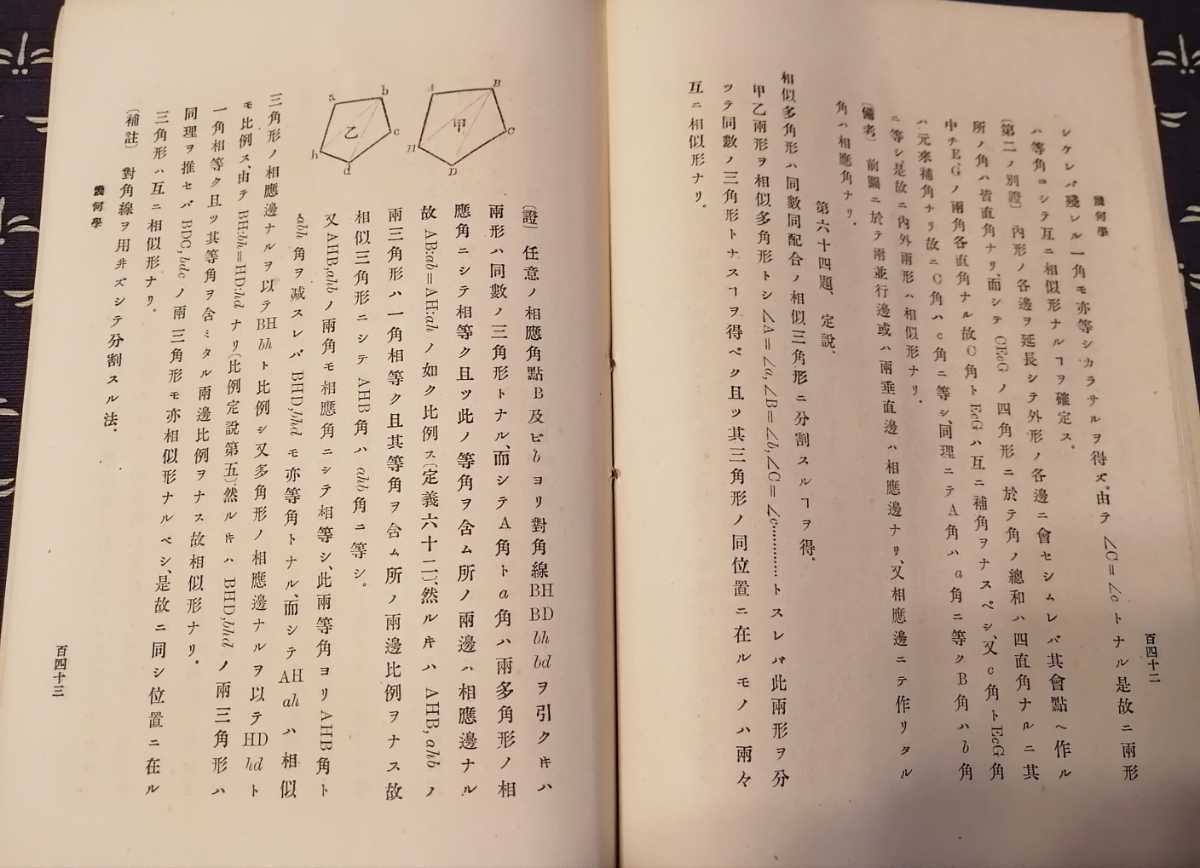 幾何學
シケレバ殘レル一角モ亦等シカラサルヲ得ズ。由テ∠C=∠cトナル是故ニ兩形
ハ等角ニシテ互ニ相似形ナルヿヲ確定ス。
〔第二ノ別證〕內形ノ各邊ヲ延長シテ外形ノ各邊ニ會セシムレバ其會點ヘ作ル
所ノ角ハ皆直角ナリ、而シテCEcGノ四角形ニ於テ角ノ總和ハ四直角ナルニ其
中チEGノ兩角各直角ナル故C角トEcGハ互ニ補角ヲナスベシ、又c角トEcG角
ハ元來補角ナリ故ニC角ハc角ニ等シ、同理ニテA角ハa角ニ等クB角ハb角
ニ等シ是故ニ內外兩形ハ相似形ナリ.
〔備考〕前圖ニ於テ兩並行邊或ハ兩垂直邊ハ相應邊ナリ、又相應邊ニテ作リタル
角ハ相應角ナリ.
第六十四題、定說.
相似多角形ハ同數同配合ノ相似三角形ニ分割スルヿヲ得.
甲乙兩形ヲ相似多角形トシ∠A=∠a,∠B=∠b,∠C=∠c…………トスレバ此兩形ヲ分
ツテ同數ノ三角形トナスヿヲ得ベク且ツ其三角形ノ同位置ニ在ルモノハ兩々
互ニ相似形ナリ.
百四十二
A
B
C
D
H
甲
a
b
c
d
h
乙
〔證〕任意ノ相應角點B及ビbヨリ對角線BH BD bh bdヲ引ク𪜈ハ
兩形ハ同數ノ三角形トナル、而シテA角トa角ハ兩多角形ノ相
應角ニシテ相等ク且ツ此ノ等角ヲ含ム所ノ兩邊ハ相應邊ナル
故AB:ab=AH:ahノ如ク比例ス〔定義六十二〕、然ル𪜈ハAHB,ahbノ
兩三角形ハ一角相等ク且其等角ヲ含ム所ノ兩邊比例ヲナス故
相似三角形ニシテAHB角ハahb角ニ等シ。
又AHB,ahbノ兩角モ相應角ニシテ相等シ、此兩等角ヨリAHB角ト
ahb角ヲ减スレバBHD,bhdモ亦等角トナル、而シテAH ahハ相似
三角形ノ相應邊ナルヲ以テBH bhト比例シ又多角形ノ相應邊ナルヲ以テHD hdト
モ比例ス、由テBH:bh=HD:hdナリ〔比例定說第五〕然ル𪜈ハBHD,bhdノ兩三角形ハ
一角相等ク且ツ其等角ヲ含ミタル兩邊比例ヲナス故相似形ナリ.
同理ヲ推セバBDC,bdcノ兩三角形モ亦相似形ナルベシ、是故ニ同シ位置ニ在ル
三角形ハ互ニ相似形ナリ.
〔補註〕對角線ヲ用ヰズシテ分割スル法.
幾何學
百四十三